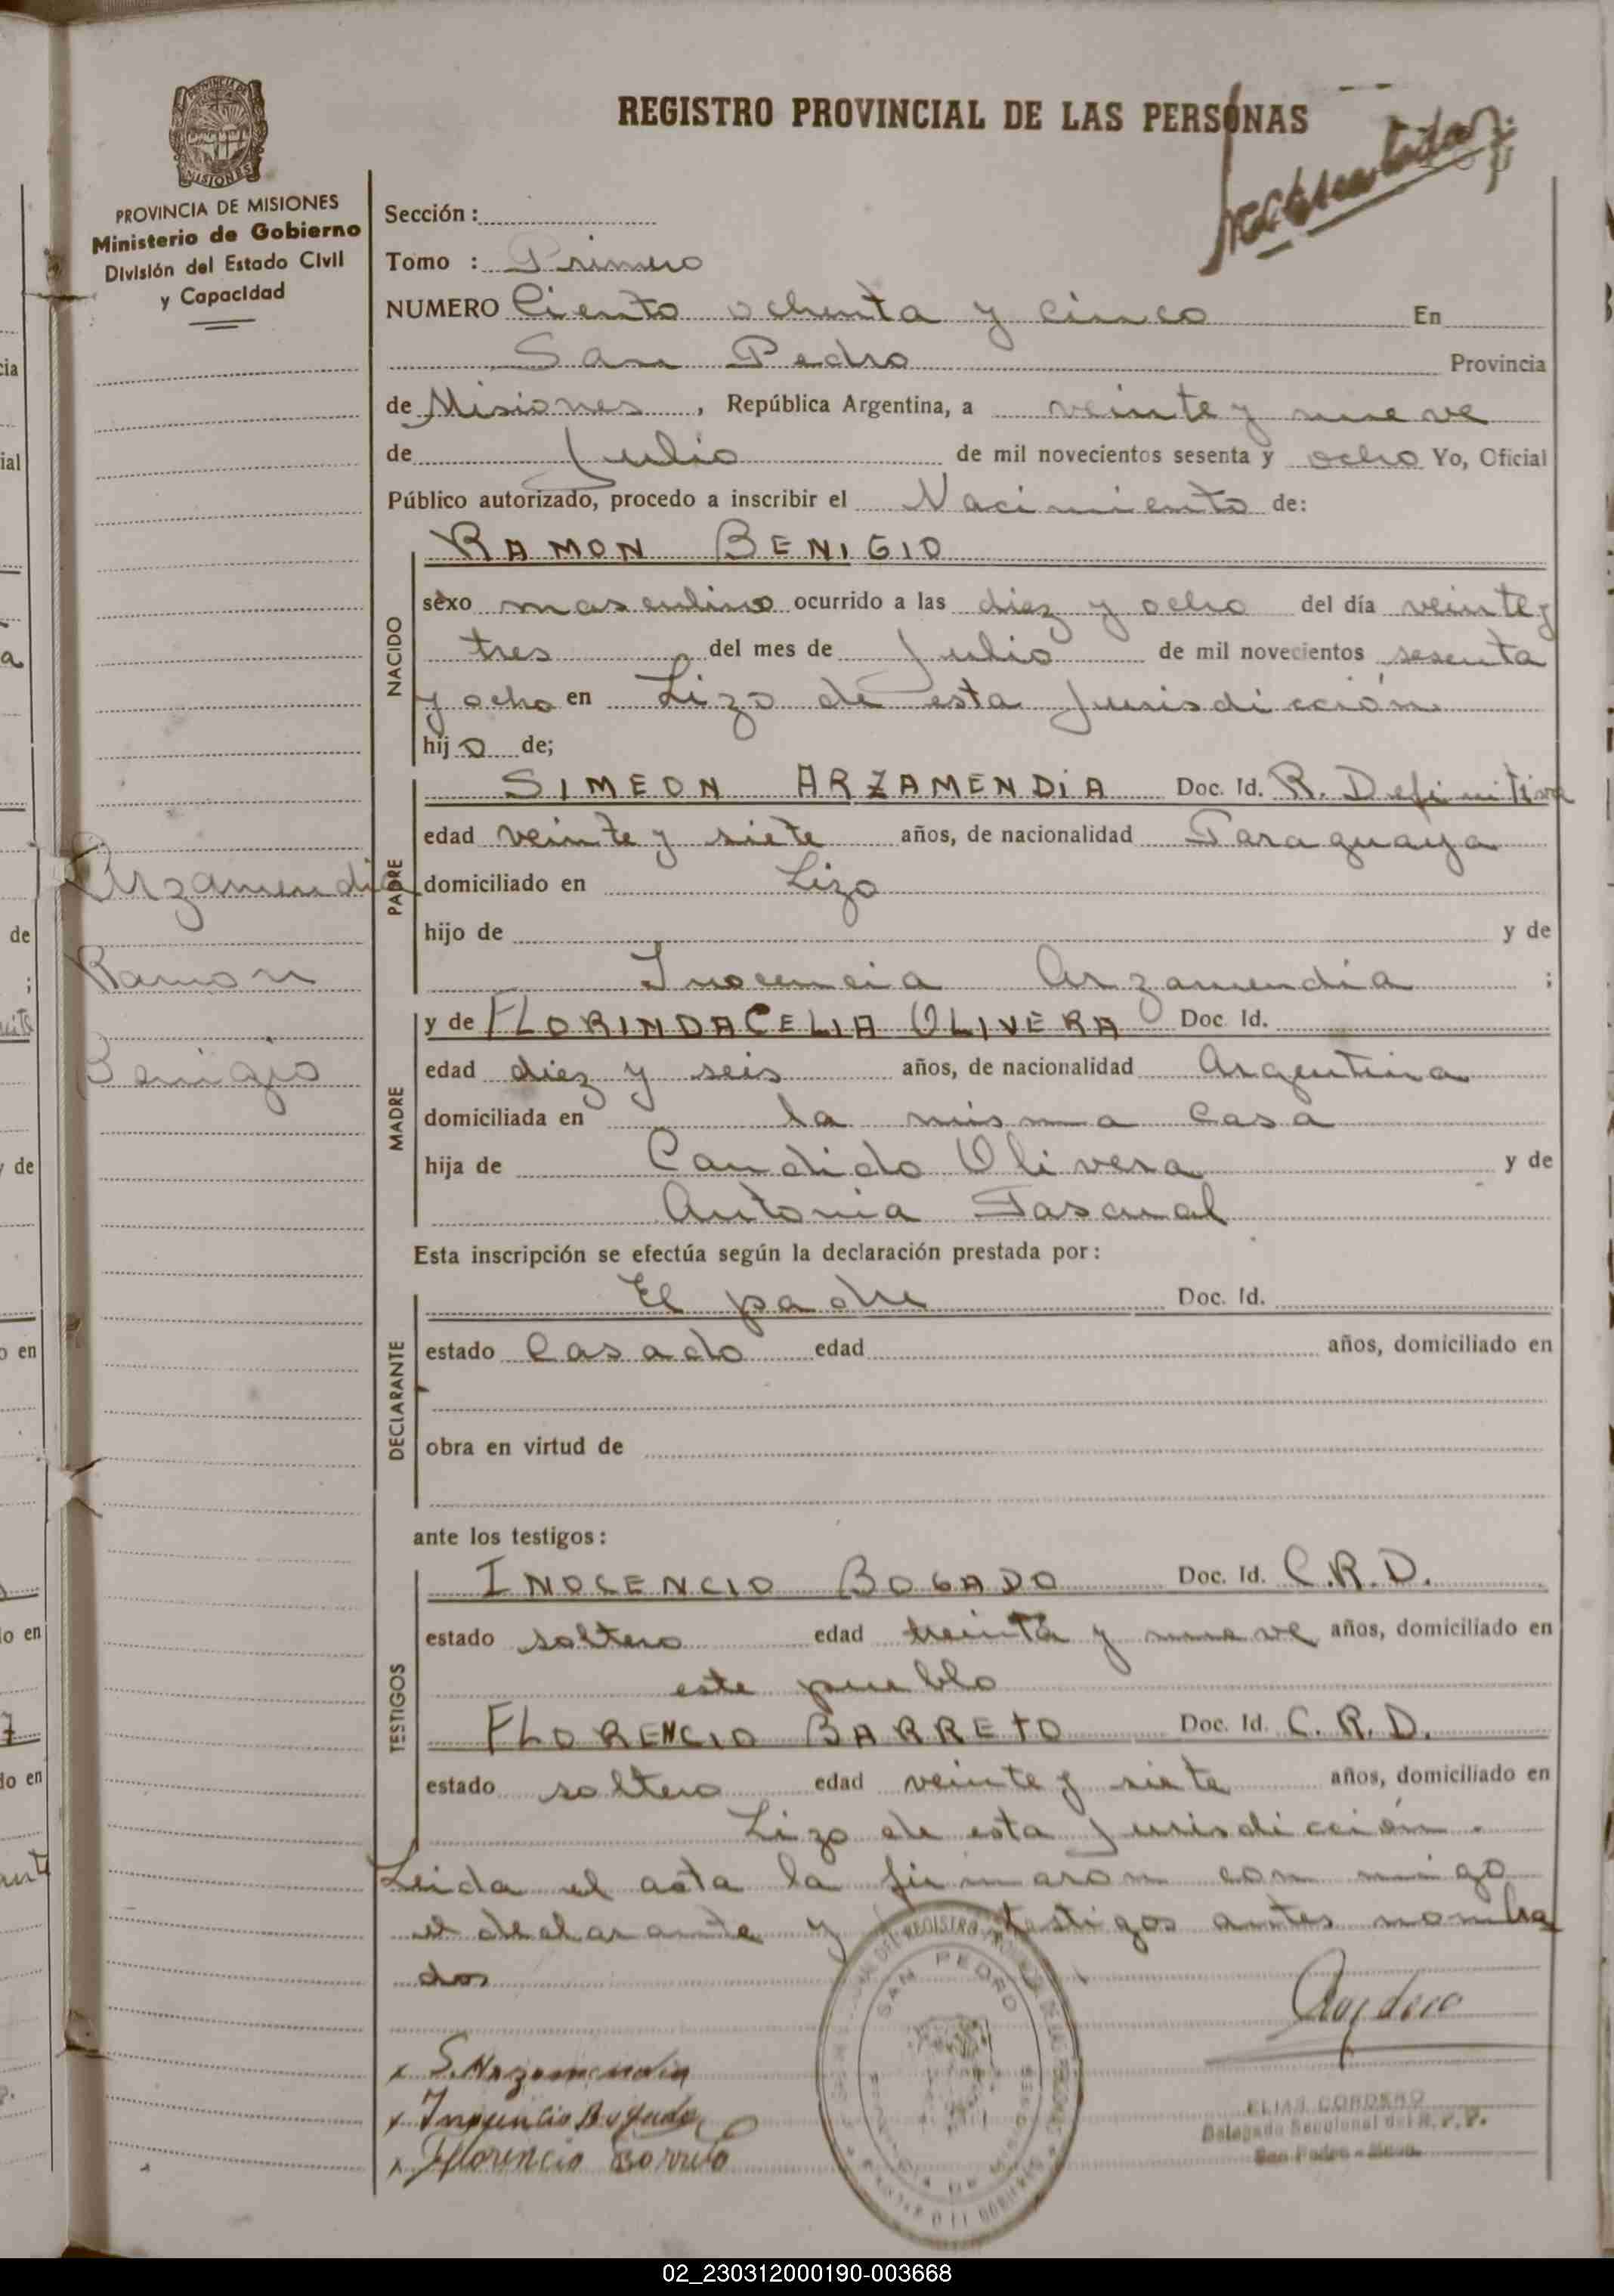 PROVINCIA DE MISIONES
Ministerio de Gobierno
División del Estado Civil
y Capacidad
REGISTRO PROVINCIAL DE LAS PERSONAS
Sección :
Tomo : Primero
NUMERO Ciento ochenta y cinco En
San Pedro Provincia
de Misiones, República Argentina, a veinte y nueve
de Julio de mil novecientos sesenta y ocho Yo, Oficial
Público autorizado, procedo a inscribir el Nacimiento de:
NACIDO
RAMON BENIGIO
sexo masculino ocurrido a las diez y ocho del día veinte y
tres del mes de Julio de mil novecientos sesenta
y ocho en Lizo de esta jurisdicción
hijo de;
PADRE
SIMEON ARZAMENDIA Doc. Id. R. Definitiva
edad veinte y siete años, de nacionalidad Paraguaya
domiciliado en Lizo
hijo de y de
Inocencia Arzamendia ;
Arzamendia
Ramon
Benigio
MADRE
y de FLORINDA CELIA OLIVERA Doc. Id.
edad diez y seis años, de nacionalidad Argentina
domiciliada en la misma casa
hija de Candido Olivera y de
Antonia Pascual
Esta inscripción se efectúa según la declaración prestada por:
DECLARANTE
El padre Doc. Id.
estado Casado edad años, domiciliado en
obra en virtud de
ante los testigos:
TESTIGOS
INOCENCIO BOGADO Doc. Id. C.R.D.
estado soltero edad treinta y nueve años, domiciliado en
este pueblo
FLORENCIO BARRETO Doc. Id. C.R.D.
estado soltero edad veinte y siete años, domiciliado en
Lizo de esta jurisdicción.
Leida el acta la firmaron con migo
el declarante y testigos antes nombra
dos
x S. Arzamendia
x Inocencio Bogado
x Florencio Barreto
SAN PEDRO
ELIAS CORDERO
Delegado Seccional del R. P. P.
San Pedro - Mnes.
02_230312000190-003668